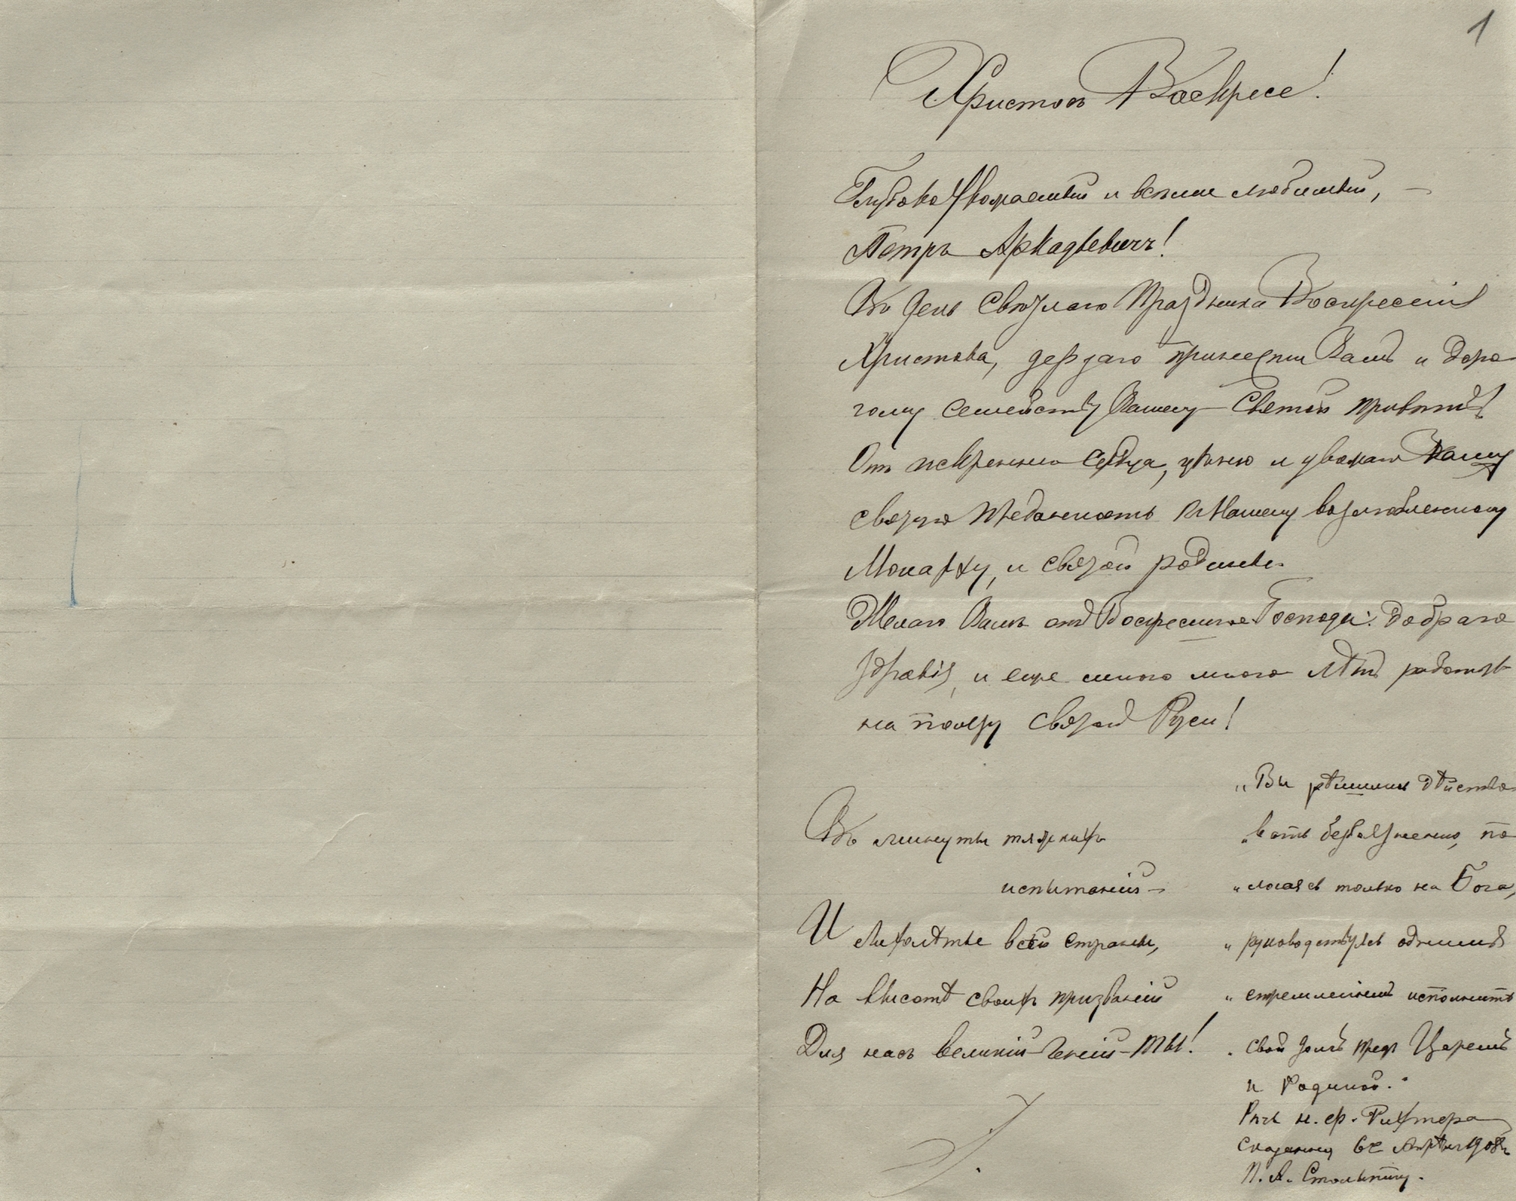 1
Христосъ Воскресе!
Глубоко Уважаемый и всѣми любимый, —
Петръ Аркадьевичъ!
Въ день Святаго Праздника Воскресенія
Христова, дерзаю принести Вамъ и доро
гому семейству Вашему — Святой привѣтъ
Отъ искренняго сердца, цѣню и уважаю Вашу
святую преданность къ Нашему возлюбленному
Монарху, и святой родинѣ.
Желаю Вамъ отъ Воскресшаго Господа: добраго
здравія, и еще много много лѣтъ работать
на пользу святой Руси!
Въ минуты тяжкихъ
испытаній —
И лихолѣтье всей страны,
На высотѣ своихъ призваній
Для насъ великій Геній — ты!
„Вы рѣшились дѣйство
„вать безбоязненно, по
„лагаясь только на Бога,
„руководствуясь однимъ
„стремленіемъ исполнить
„свой долгъ предъ Царемъ
и Родиной."
Рѣчь н. ф. Рихтера
сказанная въ Апрѣлѣ 1908 г.
П. А. Столыпину.